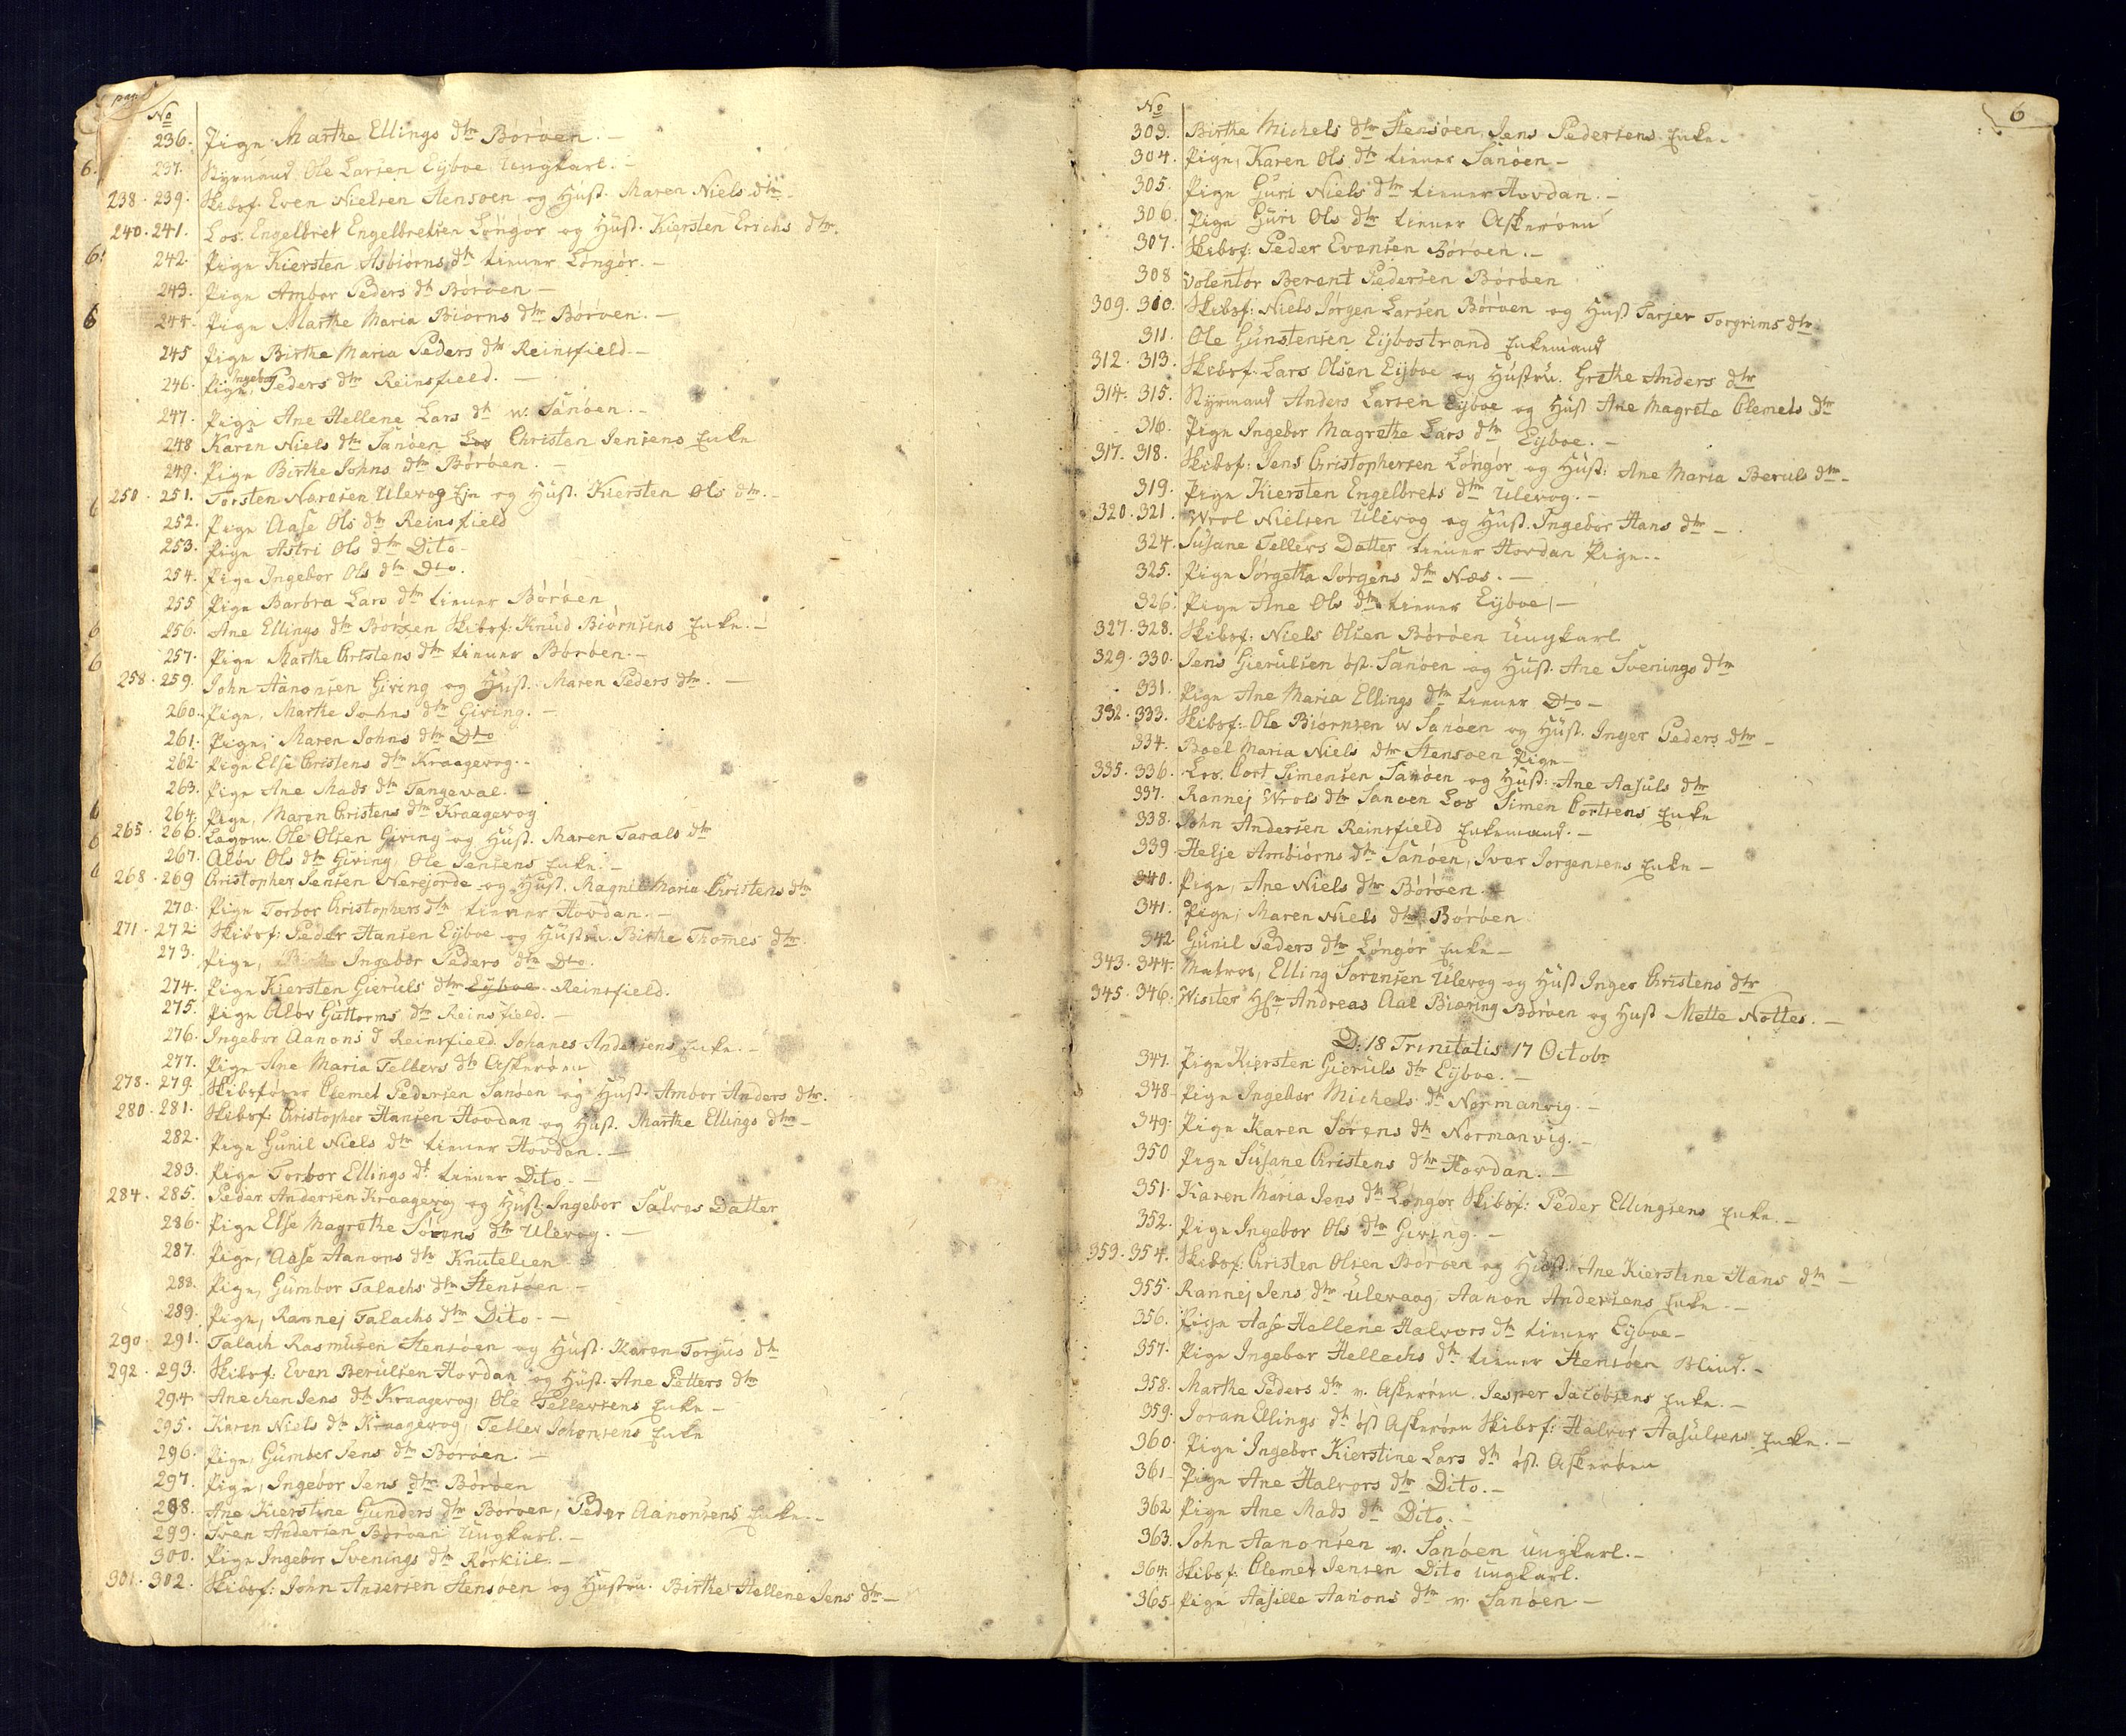 pag
No
236. Pige Marthe Ellings dtr Böröen. —
6. 237. Styrmand Ole Larsen Eijboe, Ungkarl. —
238. 239. Skibsf: Even Nielsen Stensöen og Hust. Maren Niels dtr —
240. 241. Los. Engelbret Engelbretsen Löngör og Hust. Kiersten Erichs dtr.
6: 242. Pige Kiersten Asbiörns dtr tiener Löngör. —
243. Pige Ambor Peders dtr Böröen —
6 244. Pige Marthe Maria Biörns dtr Böröen. —
245 Pige Birthe Maria Peders dtr Reinsfield. —
246. Pige, Ingebor Peders dtr Reinsfield. —
247. Pige Ane Hellene Lars dtr w. Sanöen. —
248 Karen Niels dtr Sanöen Los Christen Jensens Enke
249. Pige Birthe Johns dtr Böröen. —
6 250. 251. Torsten Naresen Ulevog Eje og Hust. Kiersten Ols dtr. —
252. Pige Aase Ols dtr Reinsfield
253. Pige Astri Ols dtr Dito —
254. Pige Ingebor Ols dtr Dto.
255 Pige Barbra Lars dtr tiener Böröen
6 256. Ane Ellings dtr Böröen Skibsf: Knud Biörnsens Enke. —
6 257. Pige Marthe Christens dtr tiener Böröen. —
258. 259. John Aanonsen Giving og Hust. Maren Peders dtr. —
260. Pige, Marthe Johns dtr Giving. —
261. Pige, Maren Johns dtr Dto
262. Pige Else Christens dtr Kraagevog. —
263. Pige Ane Mads dtr Tangeval. —
6 264. Pige, Maren Christens dtr Kraagevog
6 265. 266. Lægom. Ole Olsen Giving og Hust. Maren Tarals dtr
6 267. Alöv Ols dtr Giving, Ole Jensens Enke. —
268. 269 Christopher Jensen Nerejorde og Hust. Magnil Maria Christens dtr
270. Pige Torbor Christophers dtr tiener Hovdan. —
271. 272. Skibsf: Peder Hansen Eijboe og Hustru. Birthe Thomes dtr.
273. Pige, Ingebor Peders dtr Dto.
274. Pige Kiersten Gieruls dtr Eijboe. Reinsfield.
275. Pige Alöv Guttorms dtr Reinsfield. —
276. Ingebor Aanons d Reinsfield. Johanes Andersens Enke. —
277. Pige Ane Maria Tellers dtr Askeröen
278. 279. Skibsförer Clemet Pedersen Sanöen og Hust. Ambor Anders dtr.
280. 281. Skibsf: Christopher Hansen Hovdan og Hust. Marthe Ellings dtr —
282. Pige Gunil Niels dtr tiener Hovdan. —
283. Pige Torbor Ellings dt. tiener Dito. —
284. 285. Peder Andersen Kraagevog og Hust. Ingebor Salves Datter
286. Pige Else Magrethe Sörens dtr Ulevog. —
287. Pige, Aase Aanons dtr Knutelien
288. Pige, Gumbor Talachs dtr Stensöen —
289. Pige, Rannej Talachs dtr Dito. —
290. 291. Talach Rasmusen Stensöen og Hust. Karen Torjus dtr
292. 293. Skibsf: Even Berulsen Hovdan og Hust. Ane Petters dtr
294. Anechen Jens dtr Kraagevog, Ole Tellersens Enke —
295. Karen Niels dtr Kraagevog, Teller Johansens Enke
296. Pige, Gumber Jens dtr Böröen. —
297. Pige, Ingebor Jens dtr Böröen
298. Ane Kierstine Gunders dtr Böröen, Peder Aanonsens Enke. —
299. Sven Andersen Böröen Ungkarl. —
300. Pige Ingebor Svenings dtr Rörkiil. —
301. 302. Skibsf: John Andersen Stensöen og Hustru. Birthe Hellene Jens dtr —
6
No
303. Birthe Michels dtr Stensöen, Jens Pedersens Enke.
304. Pige, Karen Ols dtr tiener Sanöen —
305. Pige Guri Niels dtr tiener Hovdan. —
306. Pige Guri Ols dtr tiener Askeröen
307. Skibsf: Peder Evensen Böröen. —
308 Volentör Berent Pedersen Böröen
309. 310. Skibsf: Niels Jörgen Larsen Böröen og Hust Tarjer Torgrims dtr
311. Ole Gunstensen Eijbostrand Enkemand
312. 313. Skibsf. Lars Olsen Eijboe og Hustru. Grethe Anders dtr
314. 315. Styrmand Anders Larsen Eijboe og Hust Ane Magrete Clemets dtr
316. Pige Ingebor Magrethe Lars dtr Eijboe. —
317. 318. Skibsf: Jens Christophersen Löngör og Hust: Ane Maria Beruls dtr —
319. Pige Kiersten Engelbrets dtr Ulevog. —
320. 321. Wrol Nielsen Ulevog og Hust. Ingebor Hans dtr —
324. Susane Tellers Datter tiener Hovdan Pige. —
325. Pige Jörgetha Jörgens dtr Næs. —
326. Pige Ane Ols dtr tiener Eijboe, —
327. 328. Skibsf: Niels Olsen Böröen Ungkarl
329. 330. Jens Gierulsen öst. Sanöen og Hust. Ane Svenings dtr
331. Pige Ane Maria Ellings dtr tiener Dto —
332. 333. Skibsf: Ole Biörnsen w Sanöen og Hust. Inger Peders dtr —
334. Boel Maria Niels dtr Stensöen Pige —
335. 336. Los. Cort Simensen Sanöen og Hust: Ane Aasuls dtr
337. Rannej Wrols dtr Sanöen Los Simen Cortsens Enke
338. John Andersen Reinsfield Enkemand. —
339. Helje Ambiörns dtr Sanöen, Iver Jorgensens Enke —
340. Pige, Ane Niels dtr Böröen. —
341. Pige, Maren Niels dtr Böröen
342. Gunil Peders dtr Löngör Enke —
343. 344. Matros, Elling Sorensen Ulevog og Hust Inger Christens dtr
345. 346. Wisiter Hr Andreas Aal Biæring Böröen og Hust Mette Nottes. —
D: 18 Trinitatis 17 Octobr
347. Pige Kiersten Gieruls dtr Eijboe. —
348. Pige Ingebor Michels dtr Normanvig. —
349. Pige Karen Sörens dtr Normanvig. —
350 Pige Susane Christens dtr Hovdan. —
351. Karen Maria Jens dtr Löngör Skibsf: Peder Ellingsens Enke. —
352. Pige Ingebor Ols dtr Giving. —
353. 354. Skibsf: Christen Olsen Böröen og Hust. Ane Kierstine Hans dtr —
355. Rannej Jens dtr Ulevaag, Aanon Andersens Enke. —
356. Pige Aase Hellene Halvors dtr tiener Eijboe —
357. Pige Ingebor Hellachs dtr tiener Stensöen Blind. —
358. Marthe Peders dtr v. Askeröen. Jesper Jacobsens Enke. —
359. Joran Ellings dtr öst Askeröen Skibsf: Halvor Aasulsens Enke. —
360. Pige Ingebor Kierstine Lars dtr öst. Askeröen
361. Pige Ane Halvors dtr Dito. —
362 Pige Ane Mads dtr Dito. —
363. John Aanonsen v. Sanöen Ungkarl. —
364. Skibsf: Clemet Jensen Dito Ungkarl.
365. Pige Aasille Aanons dtr v. Sanöen —